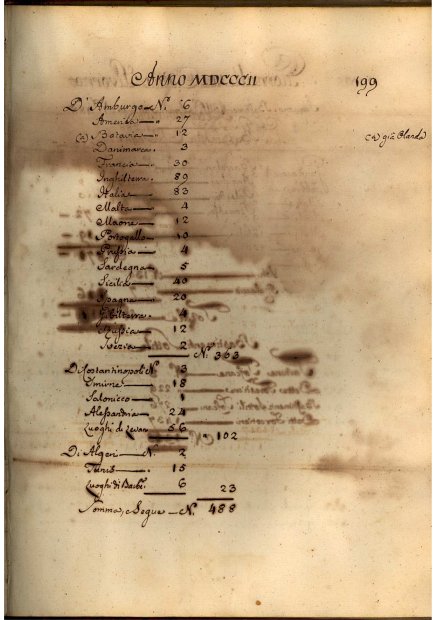 Anno MDCCCII 199
D'Amburgo N.° 6
America " 27
(a) Batavia " 12 (a) già Olanda
Danimarca 3
Francia 30
Inghilterra 89
Italia 83
Malta 4
Maone 12
Portogallo 10
Prussia 4
Sardegna 5
Sicilia 40
Spagna 20
Gibilterra 4
Russia 12
Svezia 2
N.° 363
D. Costantinopoli N. 3
Smirne 18
Salonicco 1
Alessandria 24
Luoghi di Levan. 56
" 102
Di Algeri N. 2
Tunis 15
Luoghi di Barb.ª 6
23
Somma, e Segue N. 488